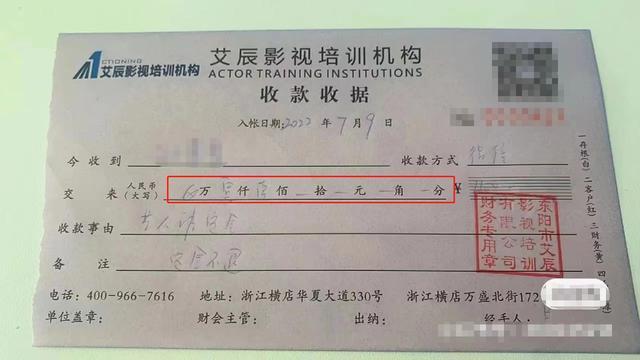 ACTIONING
艾辰影视培训机构
艾辰影视培训机构
ACTOR TRAINING INSTITUTIONS
收款收据
入帐日期:2022年7月9日
今收到 收款方式 微信
交来 人民币(大写) 万 仟 佰 拾 元 角 分 ¥
收款事由 艺人 定金
备注 定金不退
东阳市艾辰影视培训有限公司财务专用章
一存根(白) 二客户(红) 三财务(黄) 四
电话:400-966-7616 地址:浙江横店华夏大道330号 浙江横店万盛北街172
单位盖章: 财会主管: 出纳: 经手人: